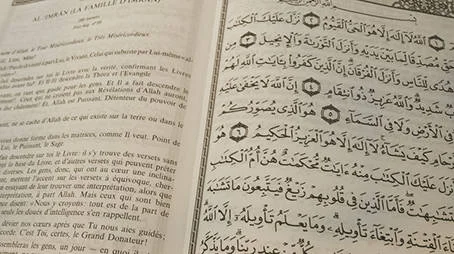 AL-IMRAN (LA FAMILLE D'IMRAN)
200 versets
d'Allah, le Tout Miséricordieux, le Très Miséricordieux.
Lâm, Mim
pas de divinité à part Lui, le Vivant, Celui qui subsiste par Lui-même «al-
descendre sur toi le Livre avec la vérité, confirmant les Livres
avant lui. Et Il fit descendre la Thora et l'Evangile
en tant que guide pour les gens. Et Il a fait descendre le
Ceux qui ne croient pas aux Révélations d'Allah auront,
châtiment! Et, Allah est Puissant, Détenteur du pouvoir de
ne se cache d'Allah de ce qui existe sur la terre ou dans le
vous donne forme dans les matrices, comme Il veut. Point de
Lui, le Puissant, le Sage
fait descendre sur toi le Livre: il s'y trouve des versets sans
la base du Livre, et d'autres versets qui peuvent prêter
diverses. Les gens, donc, qui ont au cœur une inclina-
mettent l'accent sur les versets à équivoque, cher-
essayant de leur trouver une interprétation, alors que
interprétation, à part Allah. Mais ceux qui sont bien
disent: «Nous y croyons: tout est de la part de
seuls les doués d'intelligence s'en rappellent.
dévier nos cœurs après que Tu nous aies guidés;
C'est Toi, certes, le Grand Donateur!
rassembleras les gens, un jour — en quoi il
ٱللَّهُ لَآ إِلَٰهَ إِلَّا هُوَ ٱلْحَىُّ ٱلْقَيُّومُ ٢ نَزَّلَ عَلَيْكَ ٱلْكِتَٰبَ
مُصَدِّقًا لِّمَا بَيْنَ يَدَيْهِ وَأَنزَلَ ٱلتَّوْرَىٰةَ وَٱلْإِنجِيلَ ٣
هُدًى لِّلنَّاسِ وَأَنزَلَ ٱلْفُرْقَانَ إِنَّ ٱلَّذِينَ كَفَرُوا۟ بِـَٔايَٰتِ ٱللَّهِ لَهُمْ
شَدِيدٌ وَٱللَّهُ عَزِيزٌ ذُو ٱنتِقَامٍ ٤ إِنَّ ٱللَّهَ لَا يَخْفَىٰ عَلَيْهِ
فِى ٱلْأَرْضِ وَلَا فِى ٱلسَّمَآءِ ٥ هُوَ ٱلَّذِى يُصَوِّرُكُمْ
كَيْفَ يَشَآءُ لَآ إِلَٰهَ إِلَّا هُوَ ٱلْعَزِيزُ ٱلْحَكِيمُ ٦
عَلَيْكَ ٱلْكِتَٰبَ مِنْهُ ءَايَٰتٌ مُّحْكَمَٰتٌ هُنَّ أُمُّ ٱلْكِتَٰبِ
فَأَمَّا ٱلَّذِينَ فِى قُلُوبِهِمْ زَيْغٌ فَيَتَّبِعُونَ مَا تَشَٰبَهَ
ٱلْفِتْنَةِ وَٱبْتِغَآءَ تَأْوِيلِهِۦ وَمَا يَعْلَمُ تَأْوِيلَهُۥٓ إِلَّا ٱللَّهُ
كُلٌّ مِّنْ عِندِ رَبِّنَا وَمَا يَذَّكَّرُ